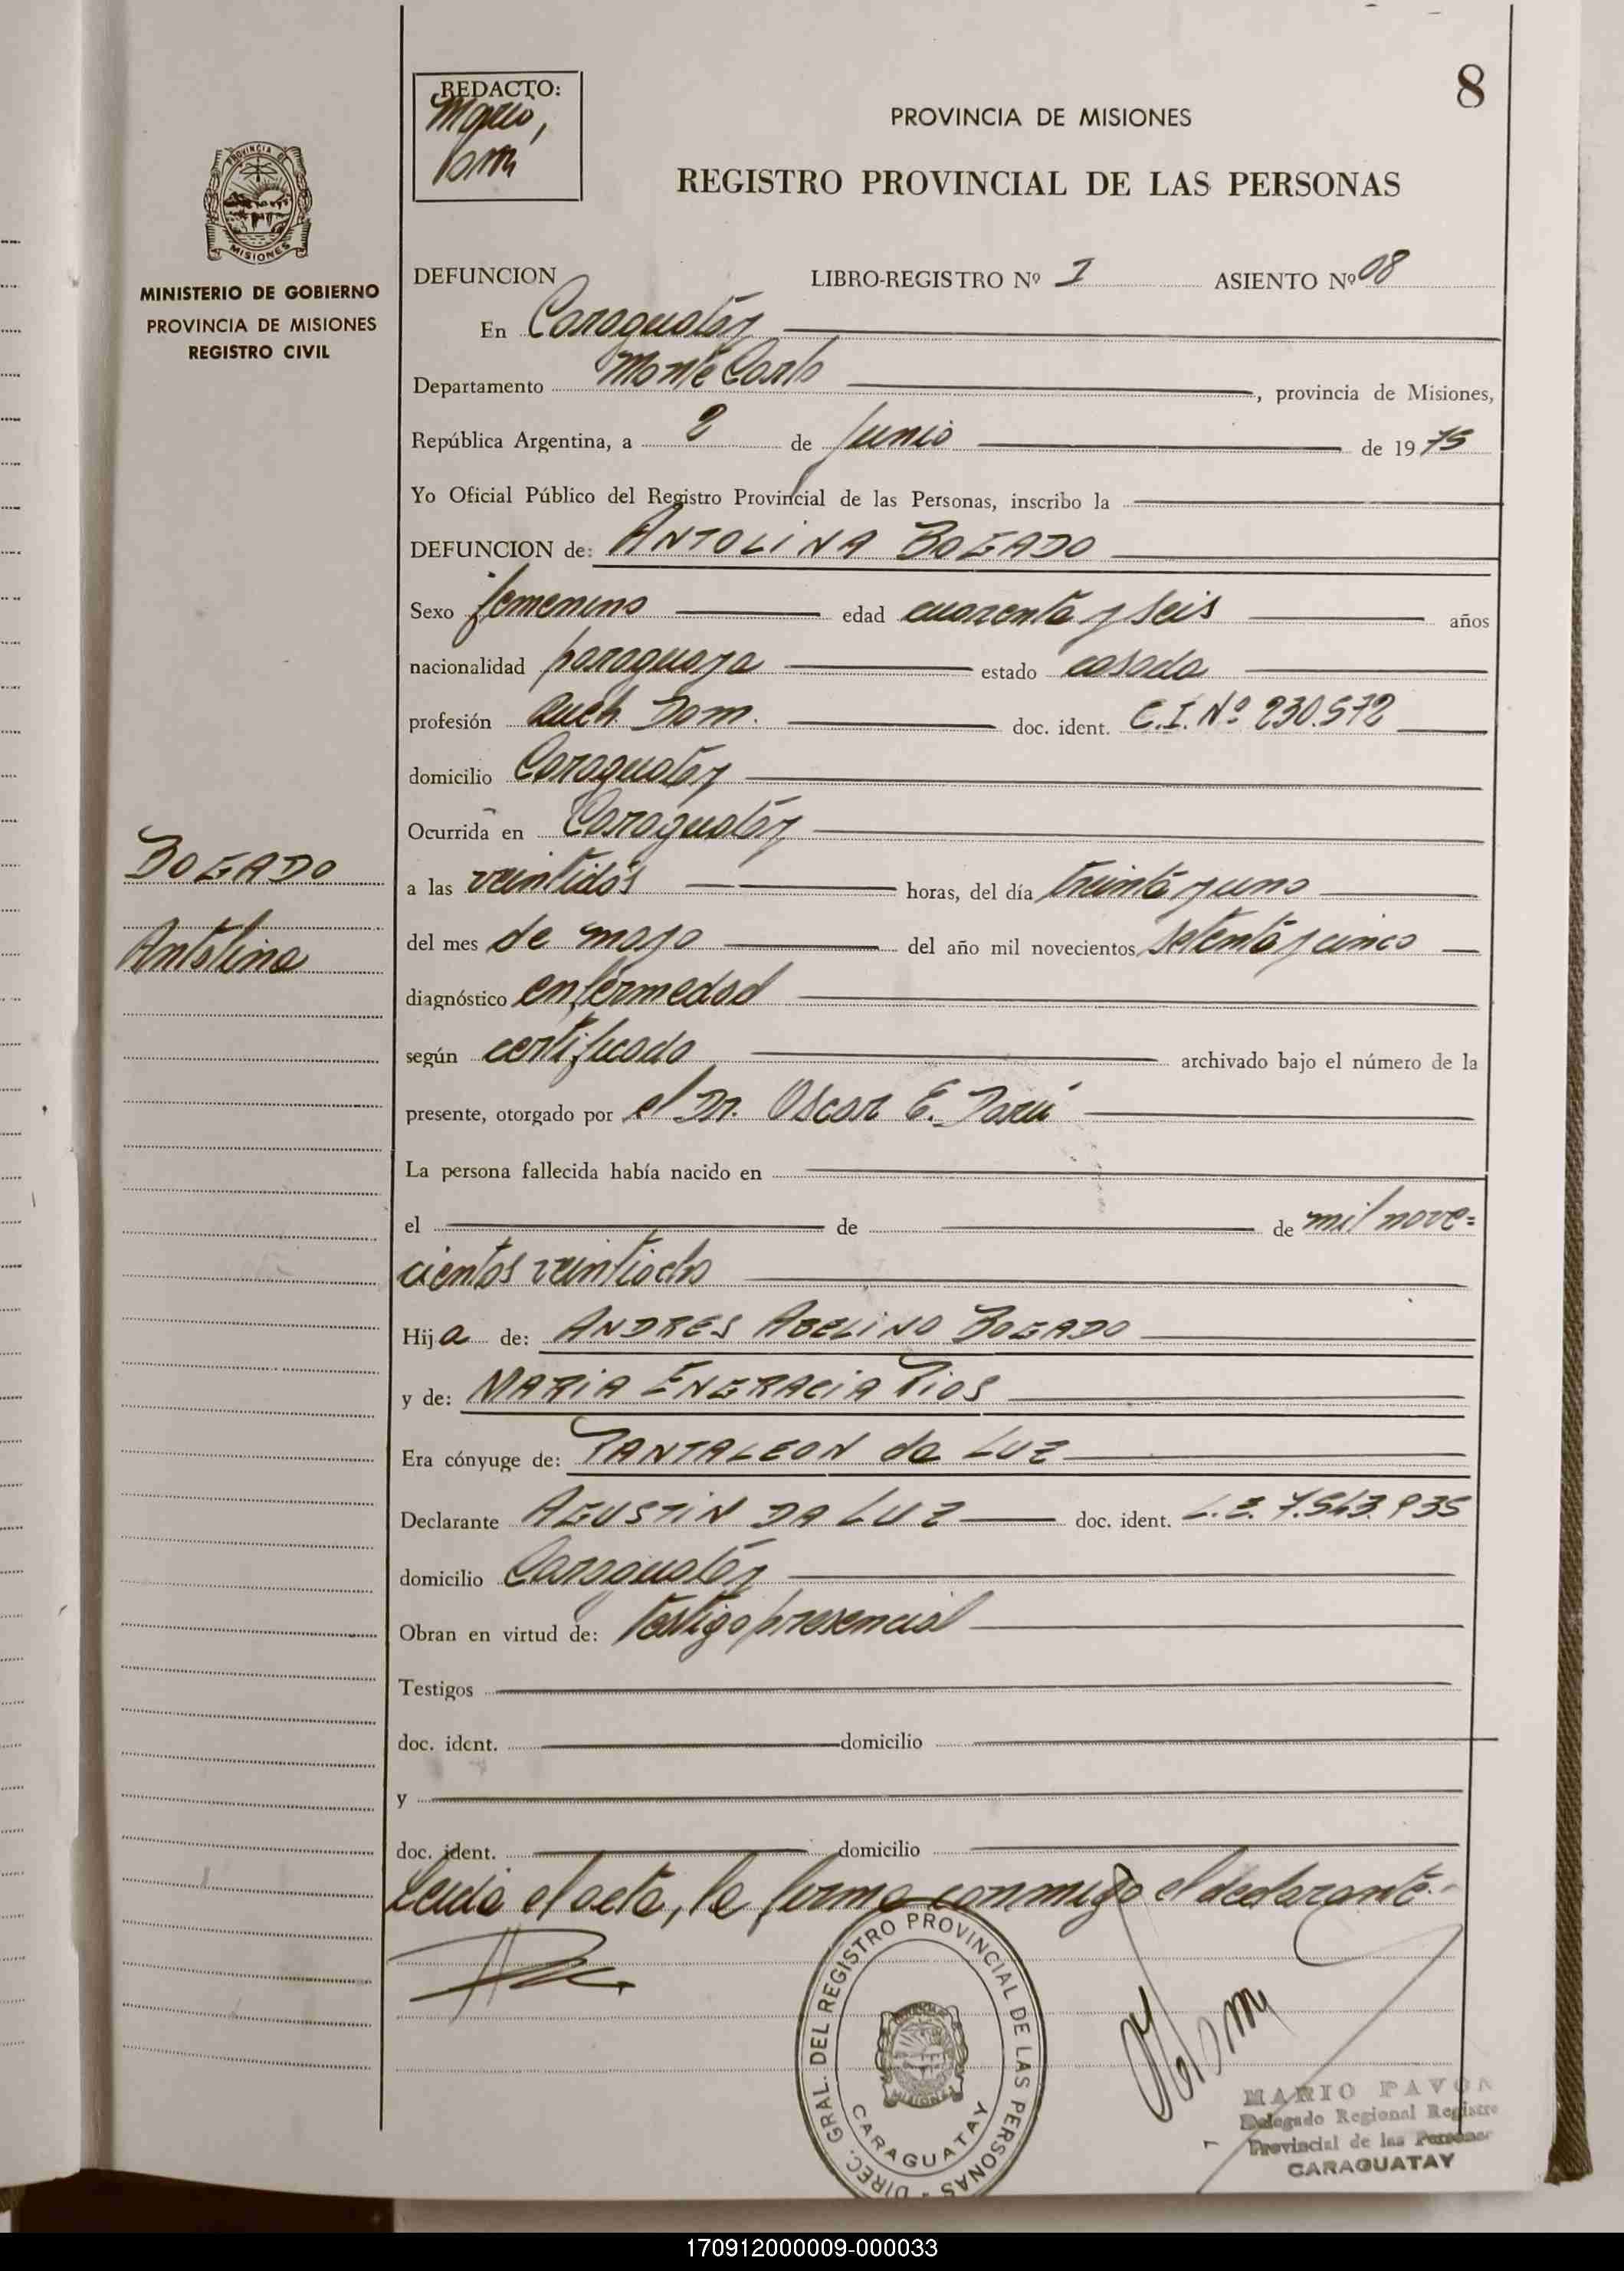 8
REDACTO:
PROVINCIA DE MISIONES
REGISTRO PROVINCIAL DE LAS PERSONAS
PROVINCIA DE
MISIONES
MINISTERIO DE GOBIERNO
PROVINCIA DE MISIONES
REGISTRO CIVIL
DEFUNCION LIBRO-REGISTRO Nº I ASIENTO Nº 08
En Caraguatáy
Departamento Monte Carlo, provincia de Misiones,
República Argentina, a 2 de Junio de 1975
Yo Oficial Público del Registro Provincial de las Personas, inscribo la
DEFUNCION de: ANTOLINA BOGADO
Sexo femenino edad cuarenta y seis años
nacionalidad paraguaya estado casada
profesión Dom. doc. ident. C.I. Nº 230.572
domicilio Caraguatáy
Ocurrida en Caraguatáy
BOGADO
a las veintidós horas, del día treinta y uno
Antolina
del mes de mayo del año mil novecientos setenta y cinco
diagnóstico enfermedad
según certificado archivado bajo el número de la
presente, otorgado por el Dr. Oscar E.
La persona fallecida había nacido en
el de de mil nove=
cientos veintiocho
Hija de: ANDRES ABELINO BOGADO
y de: MARIA ENGRACIA RIOS
Era cónyuge de: PANTALEON da LUZ
Declarante AGUSTIN DA LUZ doc. ident. L.E. 7.543.935
domicilio Caraguatáy
Obran en virtud de: testigo presencial
Testigos
doc. ident. domicilio
y
doc. ident. domicilio
Leida el acta, la firma conmigo el declarante.-
DIREC. GRAL. DEL REGISTRO PROVINCIAL DE LAS PERSONAS -
CARAGUATAY
MARIO PAVON
Delegado Regional Registro
Provincial de las Personas
CARAGUATAY
170912000009-000033